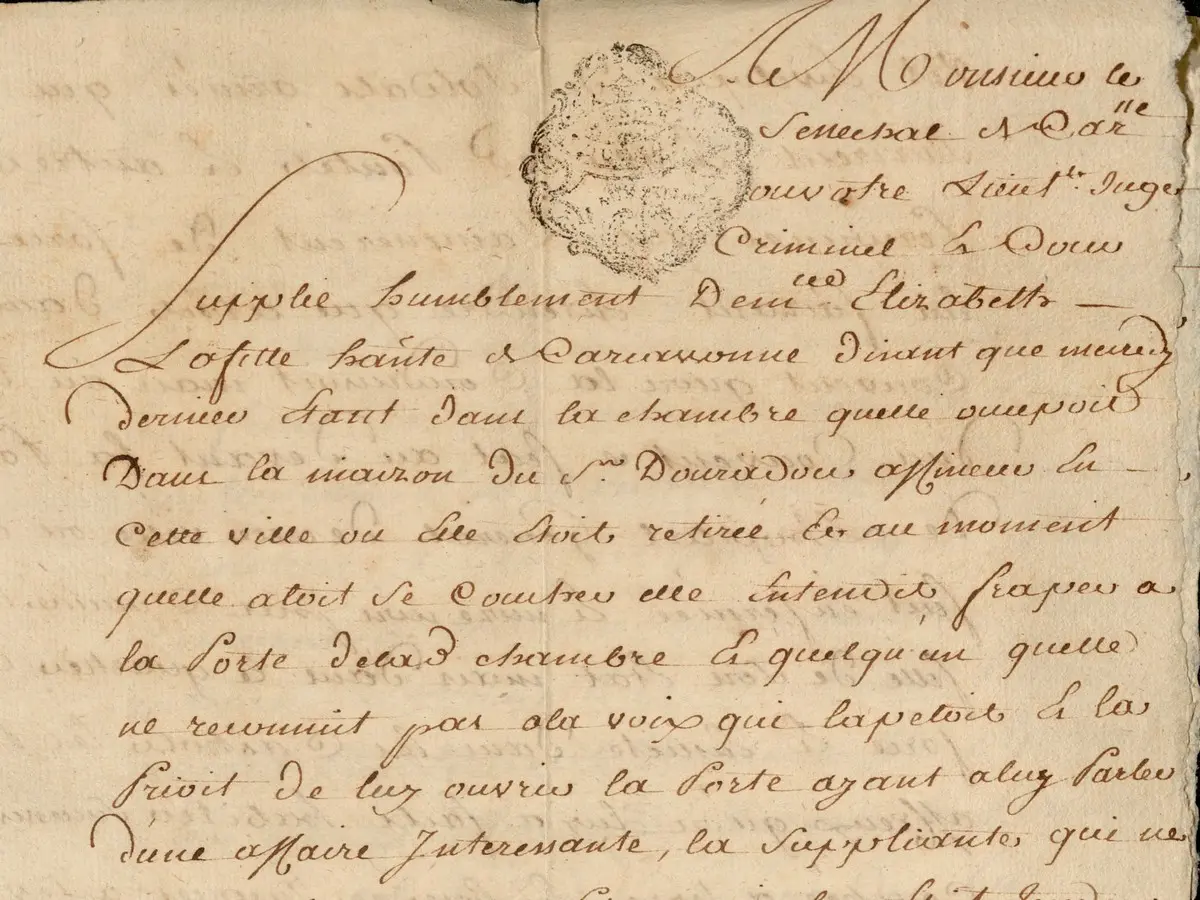 A Monsieur le
Senechal de Car^lle
ou votre Lieut^t. Juge
Criminel En Cour
Supplie humblement Dem^lle Elizabeth
Lafitte hãnte de Carcassonne Disant que mercredy
dernier Etant dans la chambre quelle occupoit
Dans la maizon du S^r. Douradou affineur En
Cette ville ou Elle Etoit retirée Et au moment
quelle aloit se Coucher elle Entendit fraper a
la Porte de lad^e chambre Et quelqu'un quelle
ne reconnut pas a la voix qui lapeloit Et la
Prioit de luy ouvrir la Porte ayant a luy Parler
d'une affaire Interessante, la Suppliante qui ne